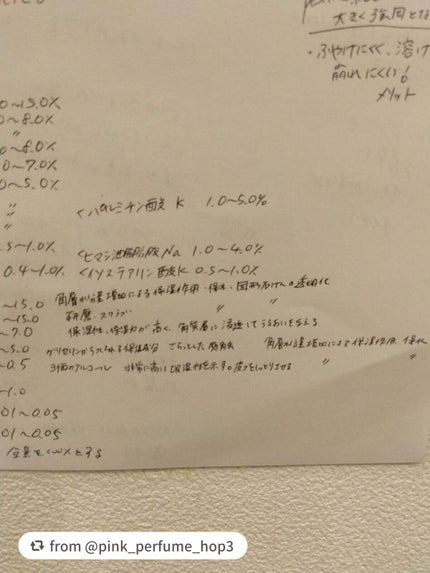 大きく強固とな
・ふやけにくく、溶け
崩れにくい！
メリット
0～15.0%
0～8.0%
〃
0～8.0%
0～7.0%
0～5.0%
〃
〃 <パルミチン酸K 1.0～5.0%
.5～1.0% <ヒマシ油脂肪酸Na 1.0～4.0%
0.4～1.0% <イソステアリン酸K 0.5～1.0%
～15.0 角層水分量増加による保湿作用・保水・固形石けんの透明化
～15.0 研磨、スクラブ 〃 〃
～7.0 保湿性、保湿力が高く、角質層に浸透してうるおいを与える
～5.0 グリセリンからつくられる保湿成分 さらっとした感触 角層水分量増加による保湿作用 保水
～0.5 3価のアルコール 非常に高い吸湿性を示す。皮フをしっとりさせる 〃 〃
～1.0
01～0.05
01～0.05
全量を100%とする
from @pink_perfume_hop3